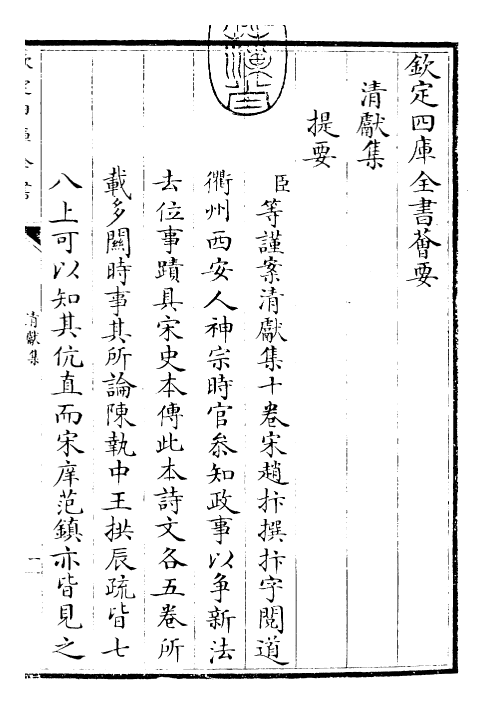 欽定四庫全書薈要
清獻集
提要
臣等謹案清獻集十卷宋趙抃撰抃字閱道
衢州西安人神宗時官參知政事以爭新法
去位事蹟具宋史本傳此本詩文各五卷所
載多闗時事其所論陳執中王拱辰疏皆七
八上可以知其伉直而宋庠范鎮亦皆見之
清獻集